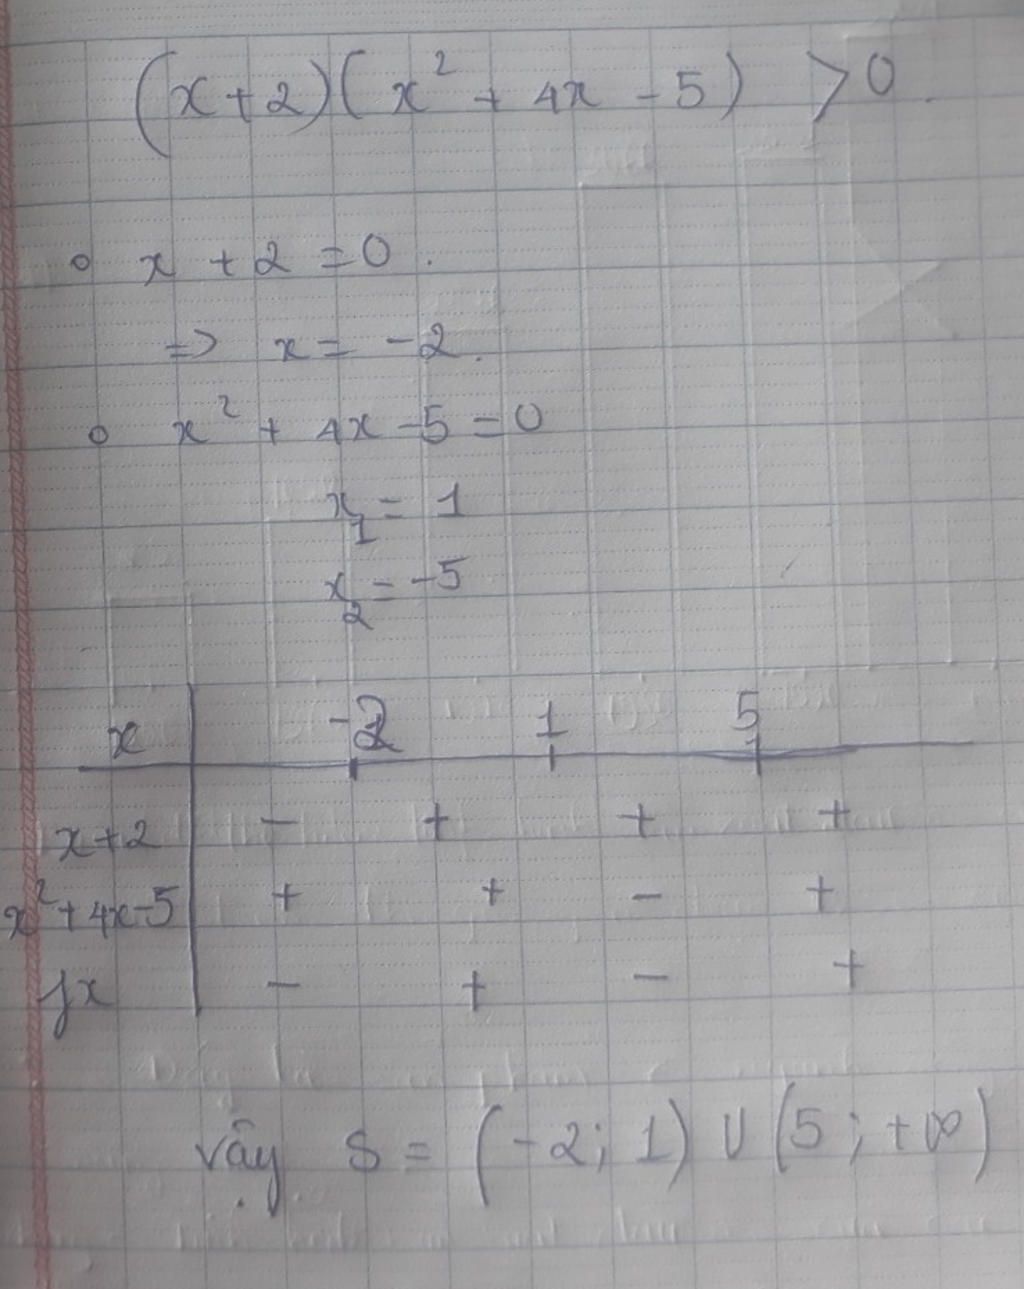 (x+2)(x² + 4x - 5) > 0.
o x + 2 = 0.
=> x = -2.
o x² + 4x - 5 = 0
x₁ = 1
x₂ = -5
x -2 1 5
x+2 - + + +
x²+4x-5 + + - +
fx - + - +
vậy S = (-2; 1) U (5; +∞)